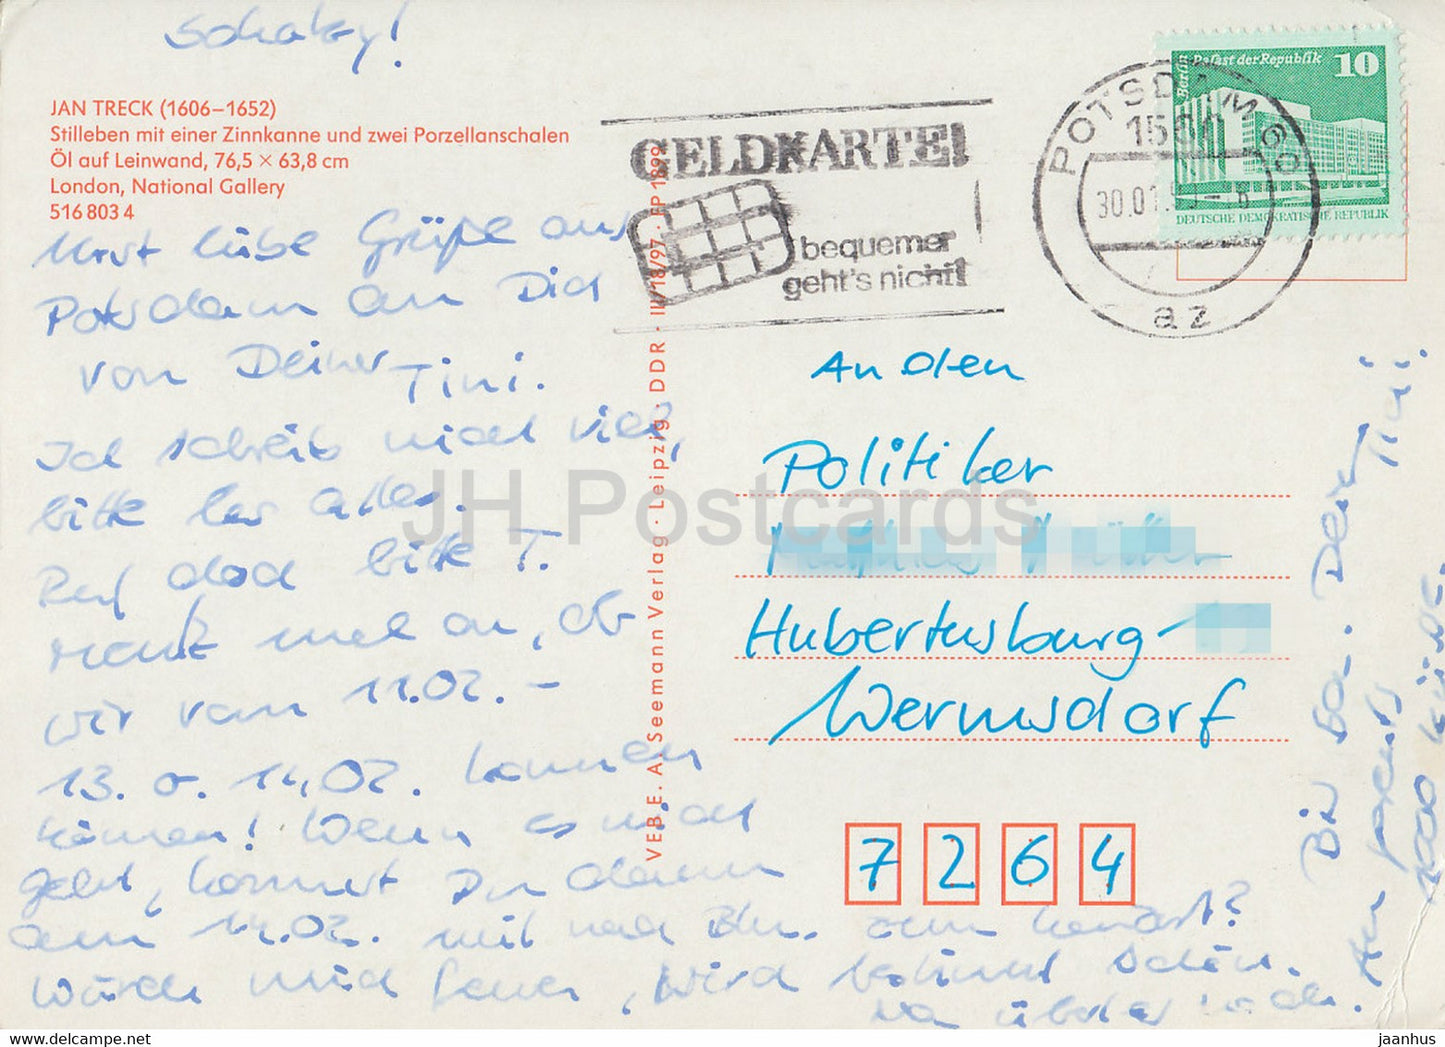 Schatzy!
JAN TRECK (1606–1652)
Stilleben mit einer Zinnkanne und zwei Porzellanschalen
Öl auf Leinwand, 76,5 × 63,8 cm
London, National Gallery
516 803 4
liebe Grüße aus
Potsdam an Dich
von Deiner Tini.
Ich schreib nicht viel,
bitte les alles.
Ruf doch bitte T.
mal an, ob
wir vom 11.02. –
13. o. 14.02. kommen
können! Wenn es nicht
geht, kommst Du dann
am 14.02. mit nach Bln. zum
würde mich freuen, wird bestimmt schön.
VEB E. A. Seemann Verlag · Leipzig · DDR · III/18/97 · FP 1899
GELDKARTE!
bequemer
geht's nicht!
POTSDAM 60
1560
30.01.9 -18
az
Berlin Palast der Republik 10
DEUTSCHE DEMOKRATISCHE REPUBLIK
An den
Politiker
Hubertusburg-
Wermsdorf
7264
Deine Tini!
1000 Küsse
JH Postcards
jaanhus
delcampe.net